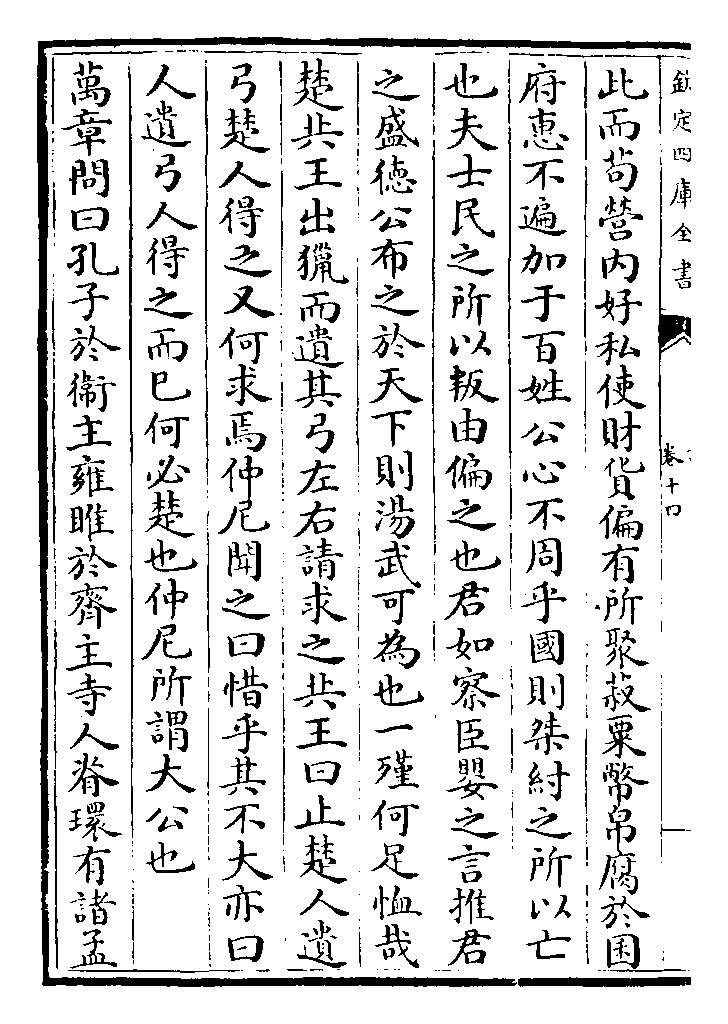 欽定四庫全書
卷十四
此而苟營内好私使財貨偏有所聚菽粟幣帛腐於囷
府惠不遍加于百姓公心不周乎國則桀紂之所以亡
也夫士民之所以叛由偏之也君如察臣嬰之言推君
之盛德公布之於天下則湯武可為也一殣何足恤哉
楚共王出獵而遺其弓左右請求之共王曰止楚人遺
弓楚人得之又何求焉仲尼聞之曰惜乎其不大亦曰
人遺弓人得之而已何必楚也仲尼所謂大公也
萬章問曰孔子於衛主雍睢於齊主寺人脊環有諸孟